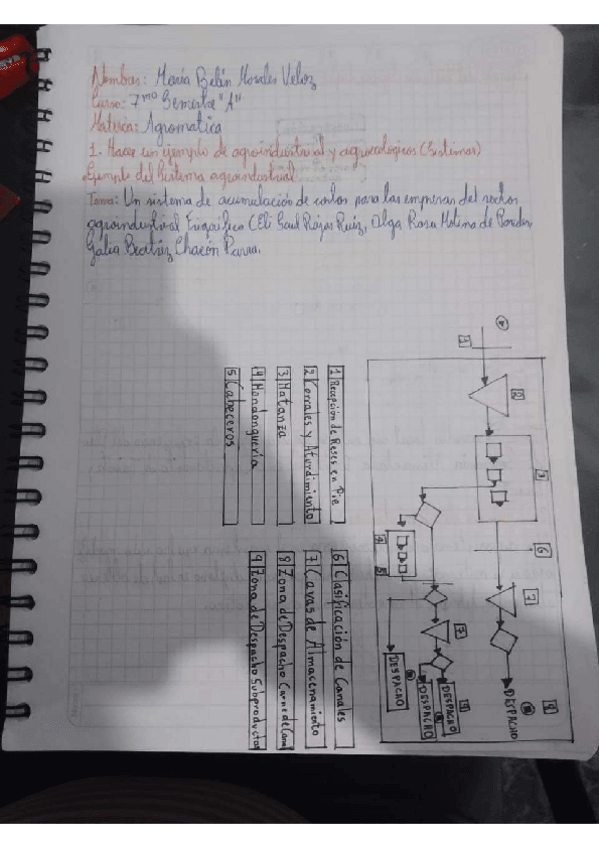 Nombres: María Belén Morales Veloz
Curso: 7mo Semestre "A"
Materia: Agromatica
1. Hacer un ejemplo de agroindustrial y agroecológicos (Sistemas)
Ejemplo del Sistema agroindustrial
Tema: Un sistema de acumulación de costos para las empresas del sector
agroindustrial (Eli Saul Rojas Ruiz, Olga Rosa Molina de Paredes,
Galia Beatriz Chacón Parra.
1 Recepción de Reses en Pie
2 Corrales y Aturdimiento
3 Matanza
4 Mondonguería
5 Cabeceros
6 Clasificación de Canales
7 Cavas de Almacenamiento
8 Zona de Despacho Carne de Canal
9 Zona de Despacho Subproductos
1
2
3
6
7
4
5
7
DESPACHO
DESPACHO
DESPACHO
DESPACHO